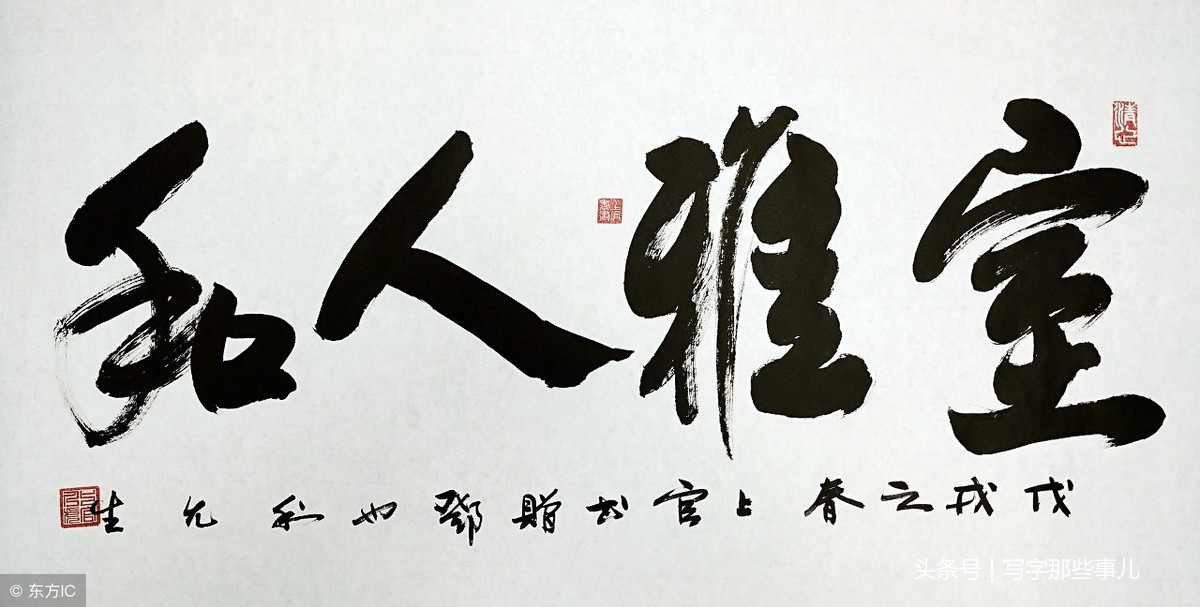 室雅人和
戊戌之春上官书赠鄧也利先生
头条号 | 写字那些事儿
© 东方IC